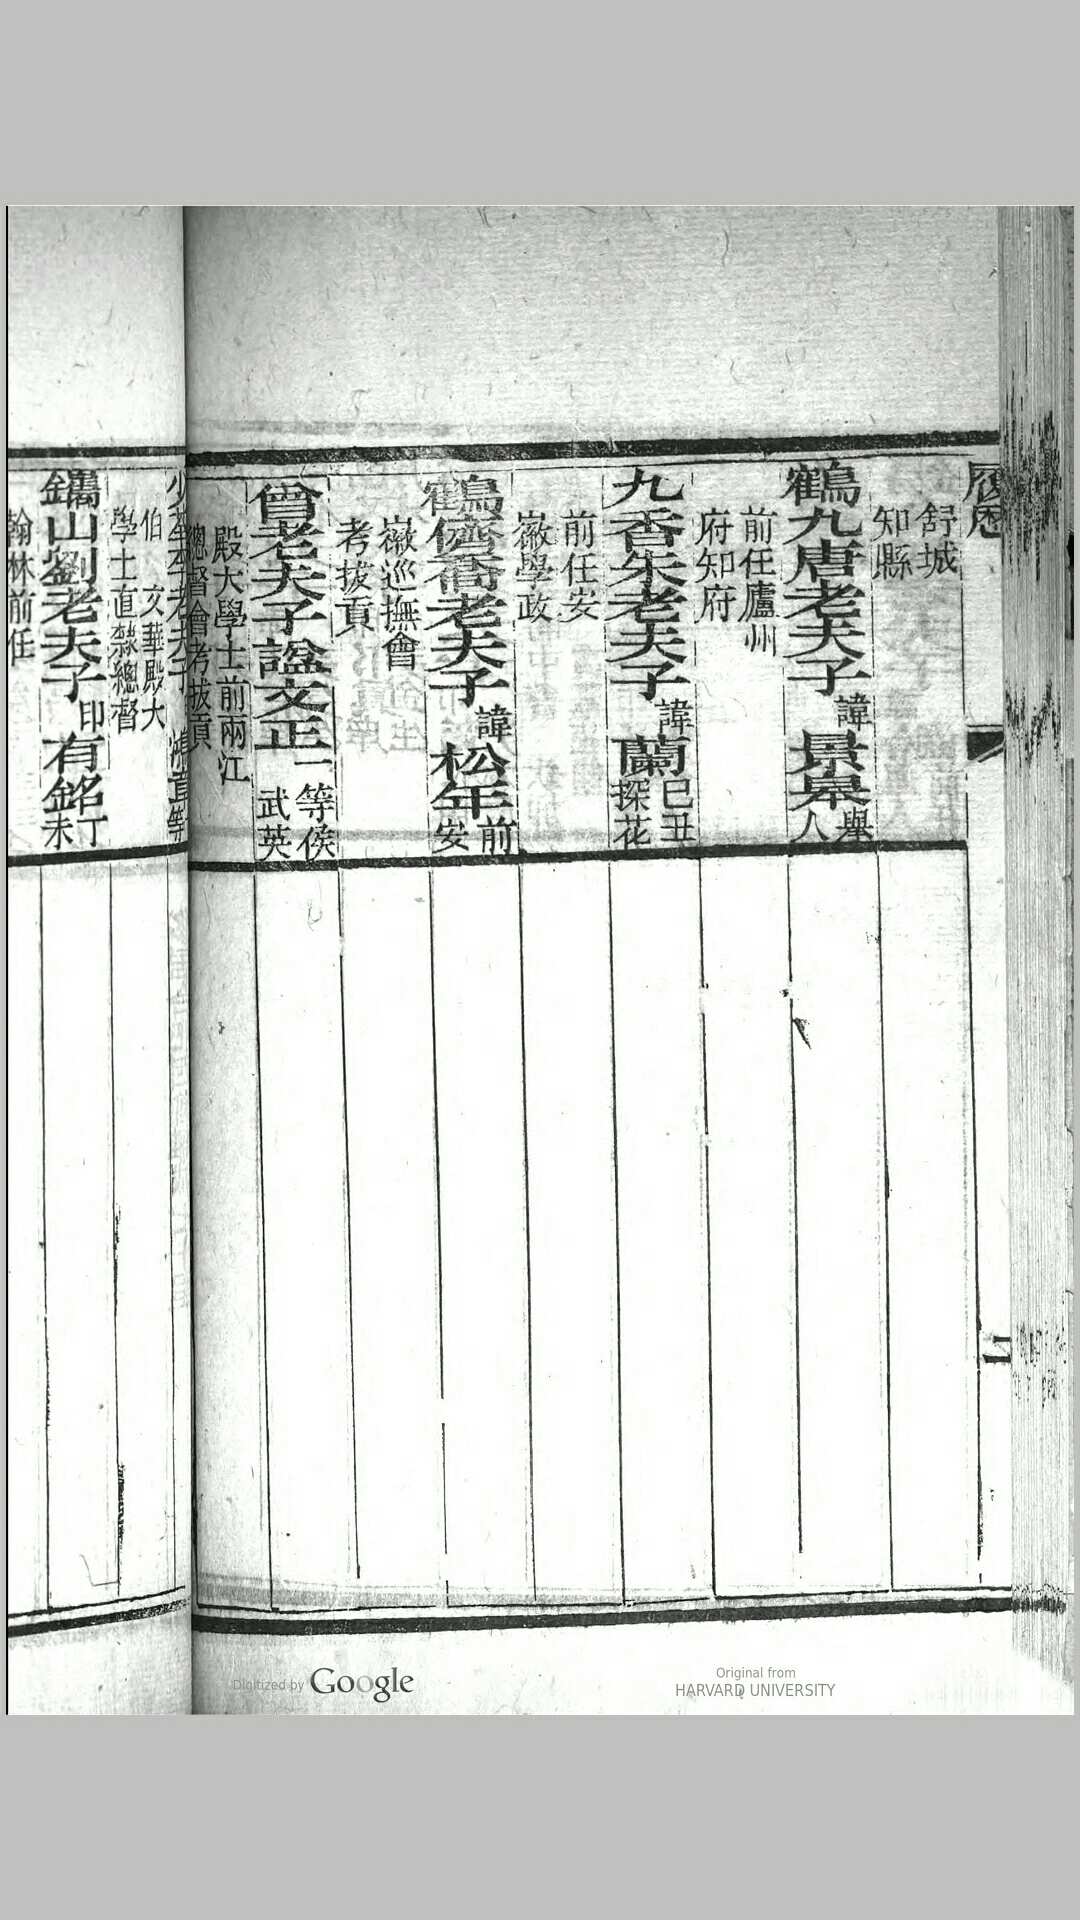 履歷
舒城
知縣
鶴九唐老夫子諱景皋舉人
前任廬州
府知府
九香朱老夫子諱蘭己丑探花
前任安
徽學政
鶴儕喬老夫子諱松年前安
徽巡撫會
考拔貢
曾老夫子諡文正一等侯武英
殿大學士前兩江
總督會考拔貢
少荃李老夫子 鴻章 一等
伯 文華殿大
學士直隸總督
鐫山劉老夫子印有銘丁未
翰林前任
Digitized by Google
Original from
HARVARD UNIVERSITY